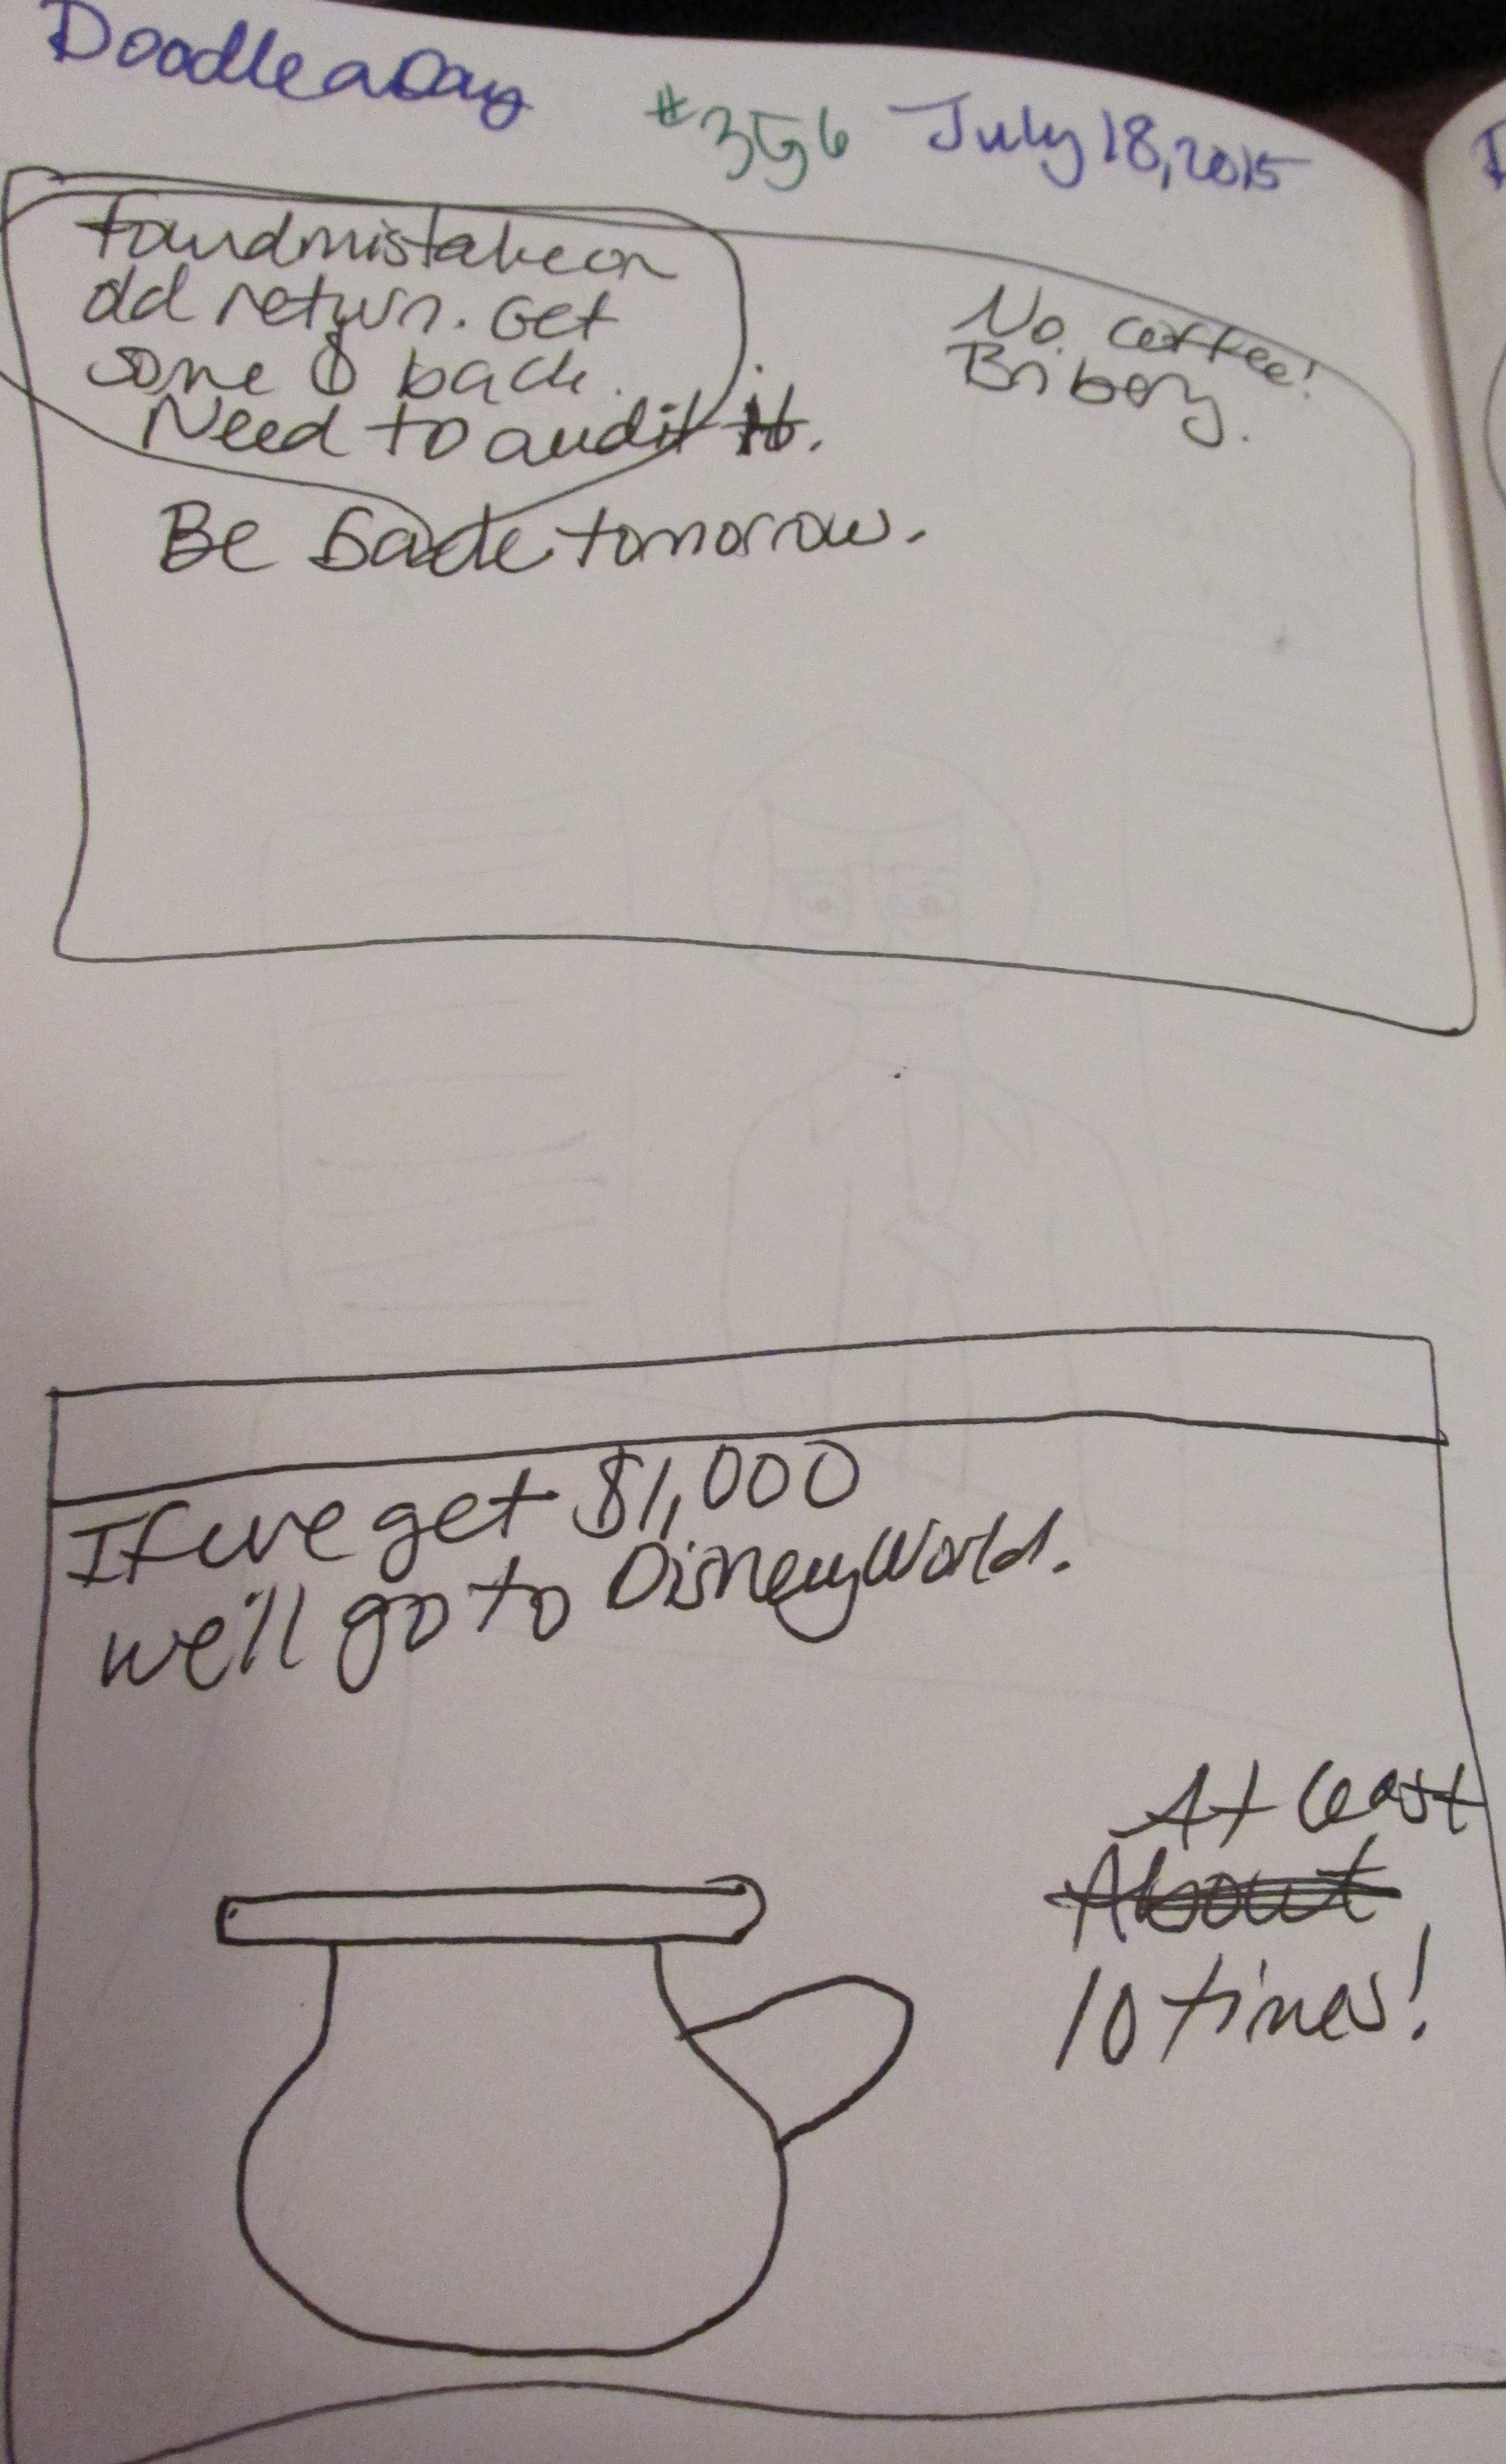 Doodle a Day #356 July 18, 2015
found mistake on
old return. Get
some $ back.
Need to audit it.
Be back tomorrow.
No coffee!
Bribery.
If we get $1,000
we'll go to Disney World.
At least
About
10 times!